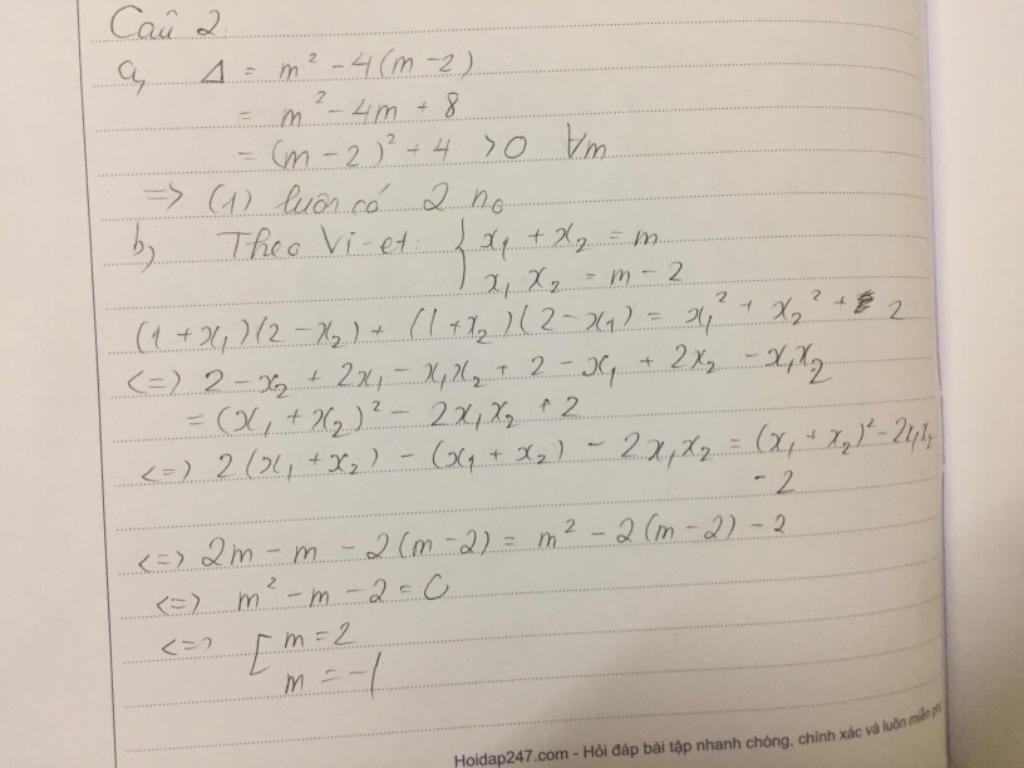 Câu 2.
a, Δ = m² - 4(m - 2)
= m² - 4m + 8
= (m - 2)² + 4 > 0 ∀m
=> (1) luôn có 2 no
b, Theo Vi-et: { x₁ + x₂ = m
x₁ x₂ = m - 2
(1 + x₁)(2 - x₂) + (1 + x₂)(2 - x₁) = x₁² + x₂² + 2
<=> 2 - x₂ + 2x₁ - x₁x₂ + 2 - x₁ + 2x₂ - x₁x₂
= (x₁ + x₂)² - 2x₁x₂ + 2
<=> 2(x₁ + x₂) - (x₁ + x₂) - 2x₁x₂ = (x₁ + x₂)² - 2x₁x₂
- 2
<=> 2m - m - 2(m - 2) = m² - 2(m - 2) - 2
<=> m² - m - 2 = 0
<=> [ m = 2
m = -1
Hoidap247.com - Hỏi đáp bài tập nhanh chóng, chính xác và luôn miễn phí